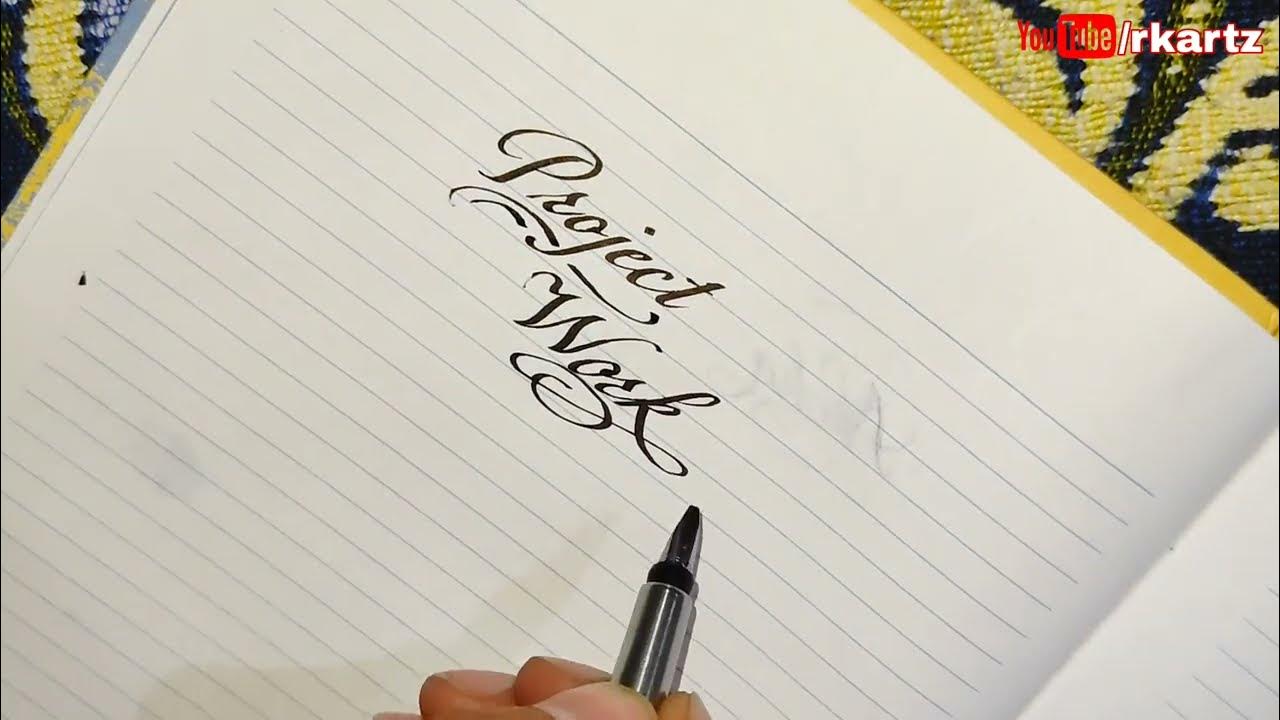 YouTube/rkartz
Project
Work